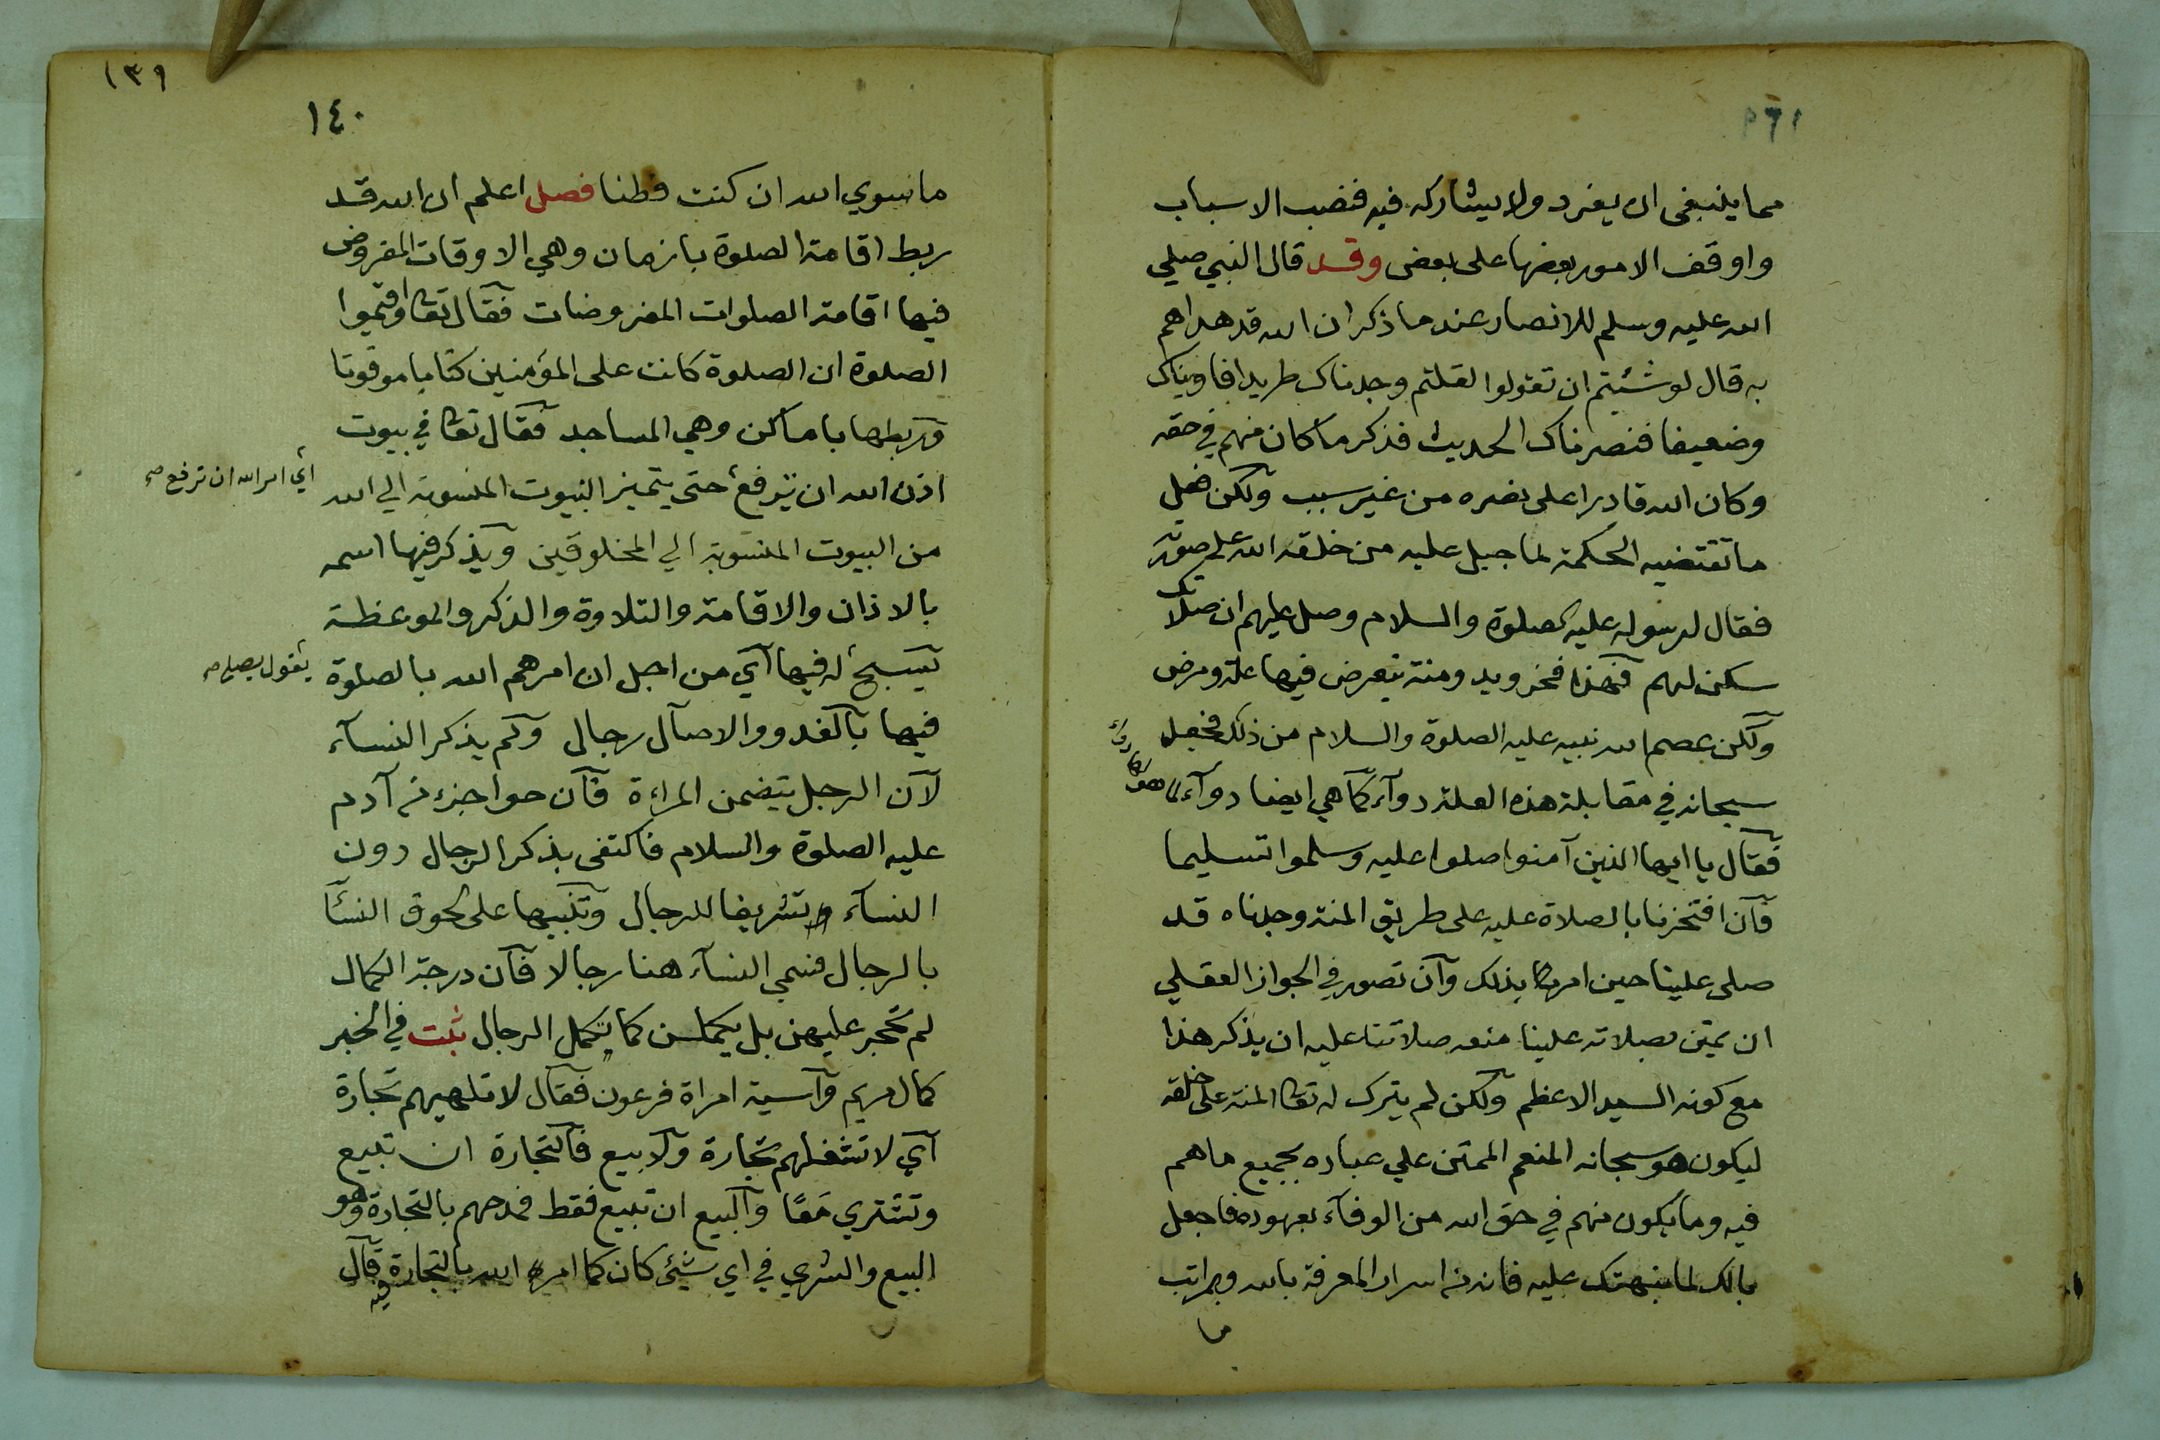 مما ينبغى ان يفرد ولا يشاركه فيه فنصب الاسباب
واوقف الامور بعضها على بعض وقد قال النبي صلي
الله عليه وسلم للانصار عندما ذكر ان الله قد هداهم
به قال لو شئتم ان تقولوا لقلتم وجدناك طريدا فاويناك
وضعيفا فنصرناك الحديث فذكر ما كان منهم في حقه
وكان الله قادرا على نصره من غير سبب ولكن فعل
ما تقتضيه الحكمة لما جبل عليه من خلقه الله على صورته
فقال لرسوله عليه الصلوة والسلام وصل عليهم ان صلاتك
سكن لهم فهذا فخر ويد ومنة يتعرض فيها علة ومرض
ولكن عصم الله نبيه عليه الصلوة والسلام من ذلك فجعل
سبحانه في مقابلة هذه العلة دوآء كما هي ايضا دوآء لما هو
فقال يا ايها الذين آمنوا صلوا عليه وسلموا تسليما
فان افتخرنا بالصلاة عليه على طريق المنة وجدناه قد
صلى علينا حين امرنا بذلك وآن تصور في الجواز العقلي
ان يمتن بصلاته علينا منعه صلاتنا عليه ان يذكر هذا
مع كونه السيد الاعظم ولكن لم يترك له تعا المنة على خلقه
ليكون هو سبحانه المنعم الممتن علي عباده بجميع ما هم
فيه وما يكون منهم في حق الله من الوفآء بعهوده فاجعل
بالك لما نبهتك عليه فانه من اسرار المعرفة بالله وبمراتب
ما
١٣٩
١٤٠
ما سوي الله ان كنت فطنا فصل اعلم ان الله قد
ربط اقامة الصلوة بازمان وهي الاوقات المفروض
فيها اقامة الصلوات المفروضات فقال تعا واقيموا
الصلوة ان الصلوة كانت على المؤمنين كتابا موقوتا
وربطها باماكن وهي المساجد فقال تعا في بيوت
اذن الله ان ترفع حتى يتميز البيوت المنسوبة الي الله
أي امر الله ان ترفع صح
من البيوت المنسوبة الي المخلوقين ويذكر فيها اسمه
بالاذان والاقامة والتلاوة والذكر والموعظة
يسبح له فيها آي من اجل ان امرهم الله بالصلوة
يقول يصلي صح
فيها بالغدو والاصآل رجال ولم يذكر النسآء
لآن الرجل يتضمن المراءة فآن حوا جزء من آدم
عليه الصلوة والسلام فاكتفى بذكر الرجال دون
النسآء تشريفا للرجال وتنبيها على لحوق النسآ
بالرجال فسمي النسآء هنا رجالا فآن درجة الكمال
لم تحجر عليهن بل يكملن كما يكمل الرجال ثبت في الخبر
كمال مريم وآسية امراة فرعون فقال لا تلهيهم تجارة
آي لا تشغلهم تجارة ولا بيع فالتجارة ان تبيع
وتشتري مَعًا والبيع ان تبيع فقط فمدحهم بالتجارة وهو
البيع والشري في اي شئ كان كما امر الله بالتجارة فيه قال